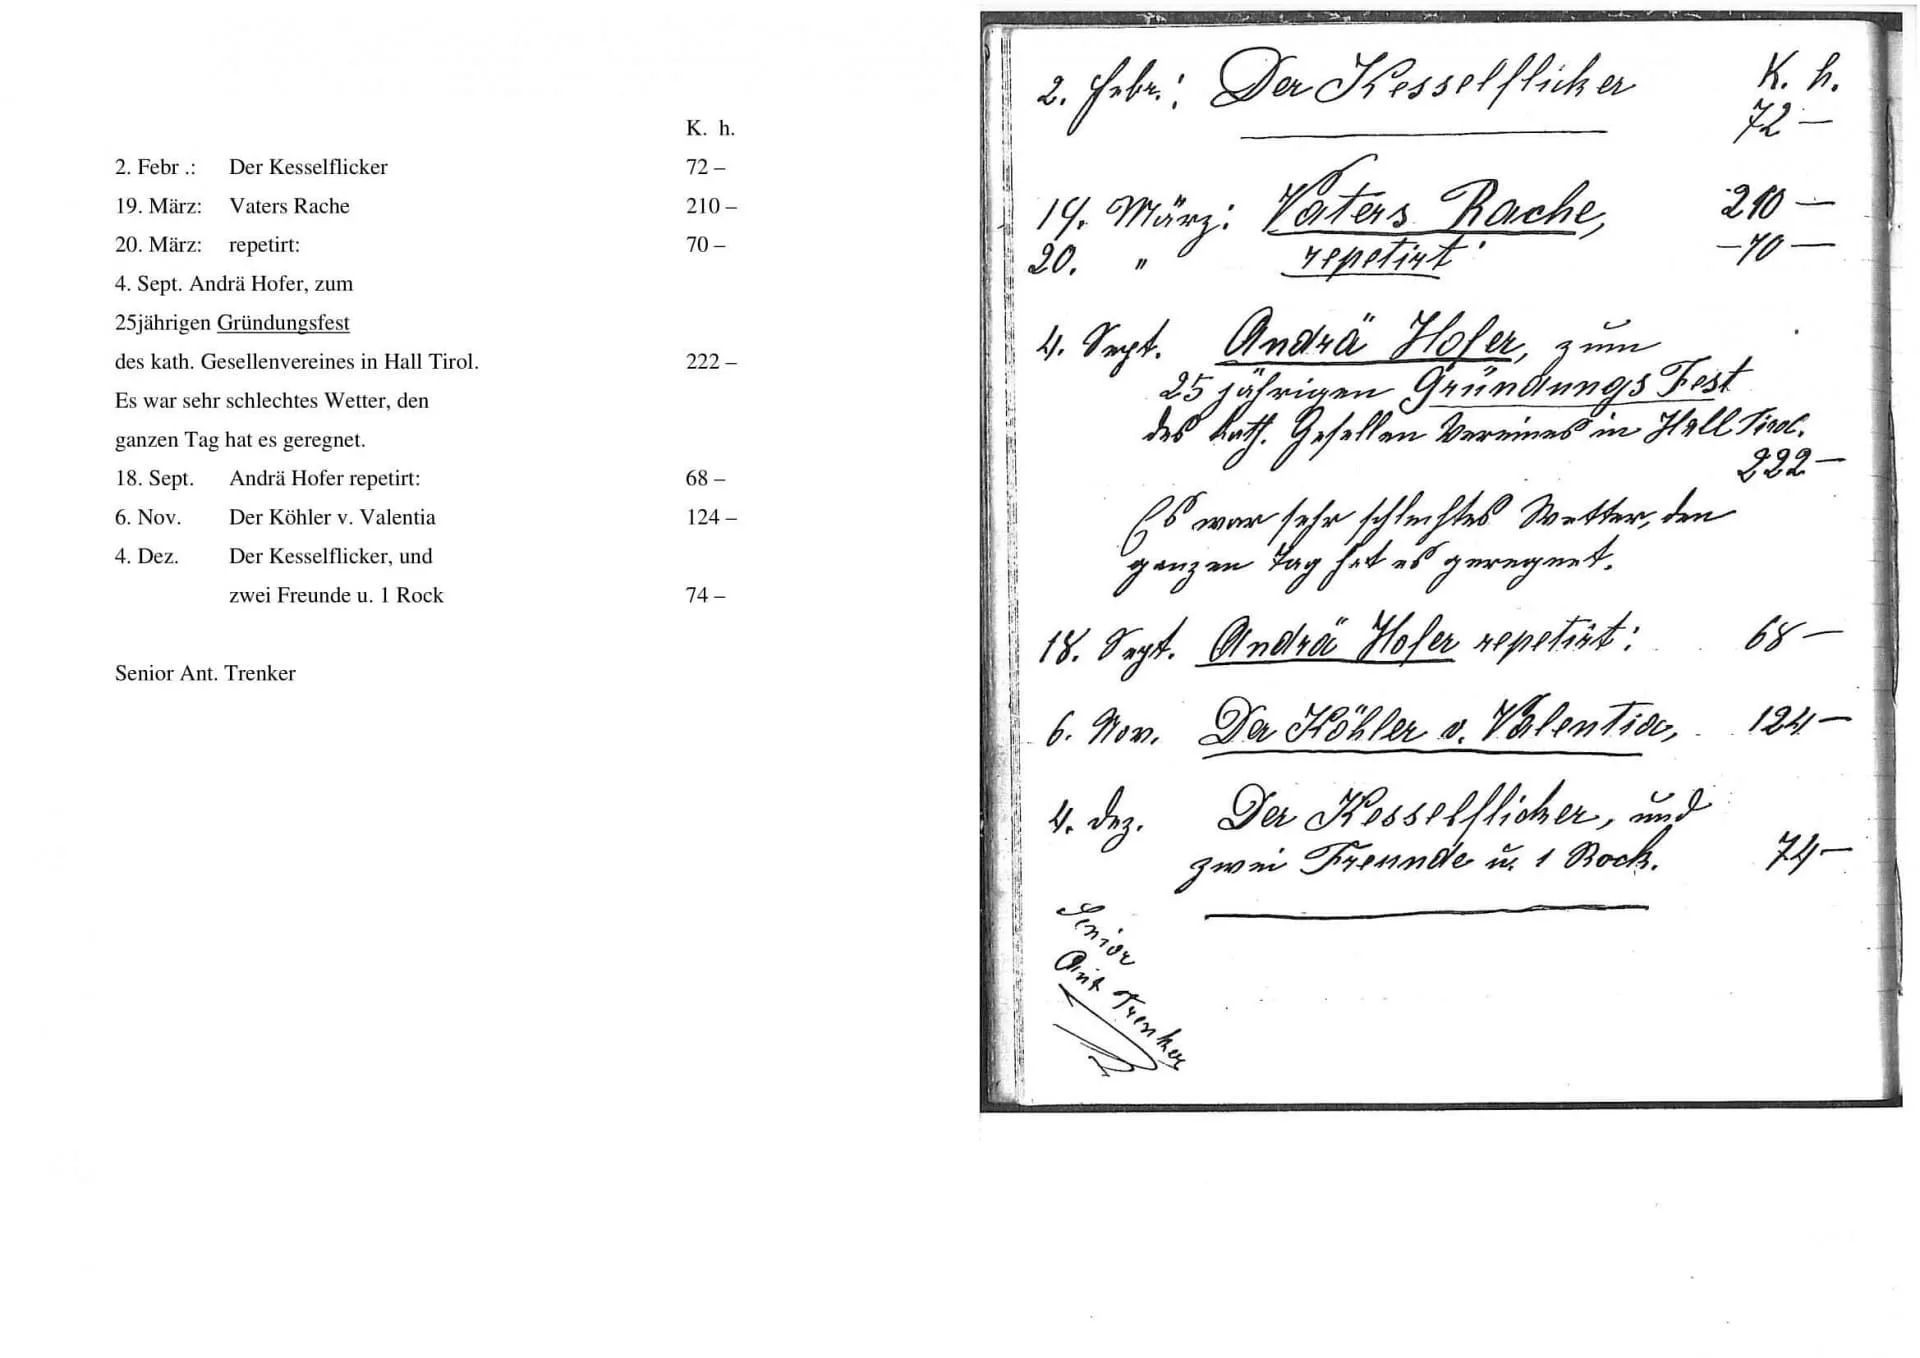 K. h.
2. Febr .: Der Kesselflicker 72 –
19. März: Vaters Rache 210 –
20. März: repetirt: 70 –
4. Sept. Andrä Hofer, zum
25jährigen Gründungsfest
des kath. Gesellenvereines in Hall Tirol. 222 –
Es war sehr schlechtes Wetter, den
ganzen Tag hat es geregnet.
18. Sept. Andrä Hofer repetirt: 68 –
6. Nov. Der Köhler v. Valentia 124 –
4. Dez. Der Kesselflicker, und
zwei Freunde u. 1 Rock 74 –
Senior Ant. Trenker
2. Febr.: Der Kesselflicker K. h.
72 —
19. März: Vaters Rache, 210 —
20. " repetirt — 70 —
4. Sept. Andrä Hofer, zum
25 jährigen Gründungs Fest
des kath. Gesellen Vereines in Hall Tirol.
222 —
Es war sehr schlechtes Wetter, den
ganzen Tag hat es geregnet.
18. Sept. Andrä Hofer repetirt: 68 —
6. Nov. Der Köhler v. Valentia, 124 —
4. Dez. Der Kesselflicker, und
zwei Freunde u. 1 Rock. 74 —
Senior
Ant Trenker